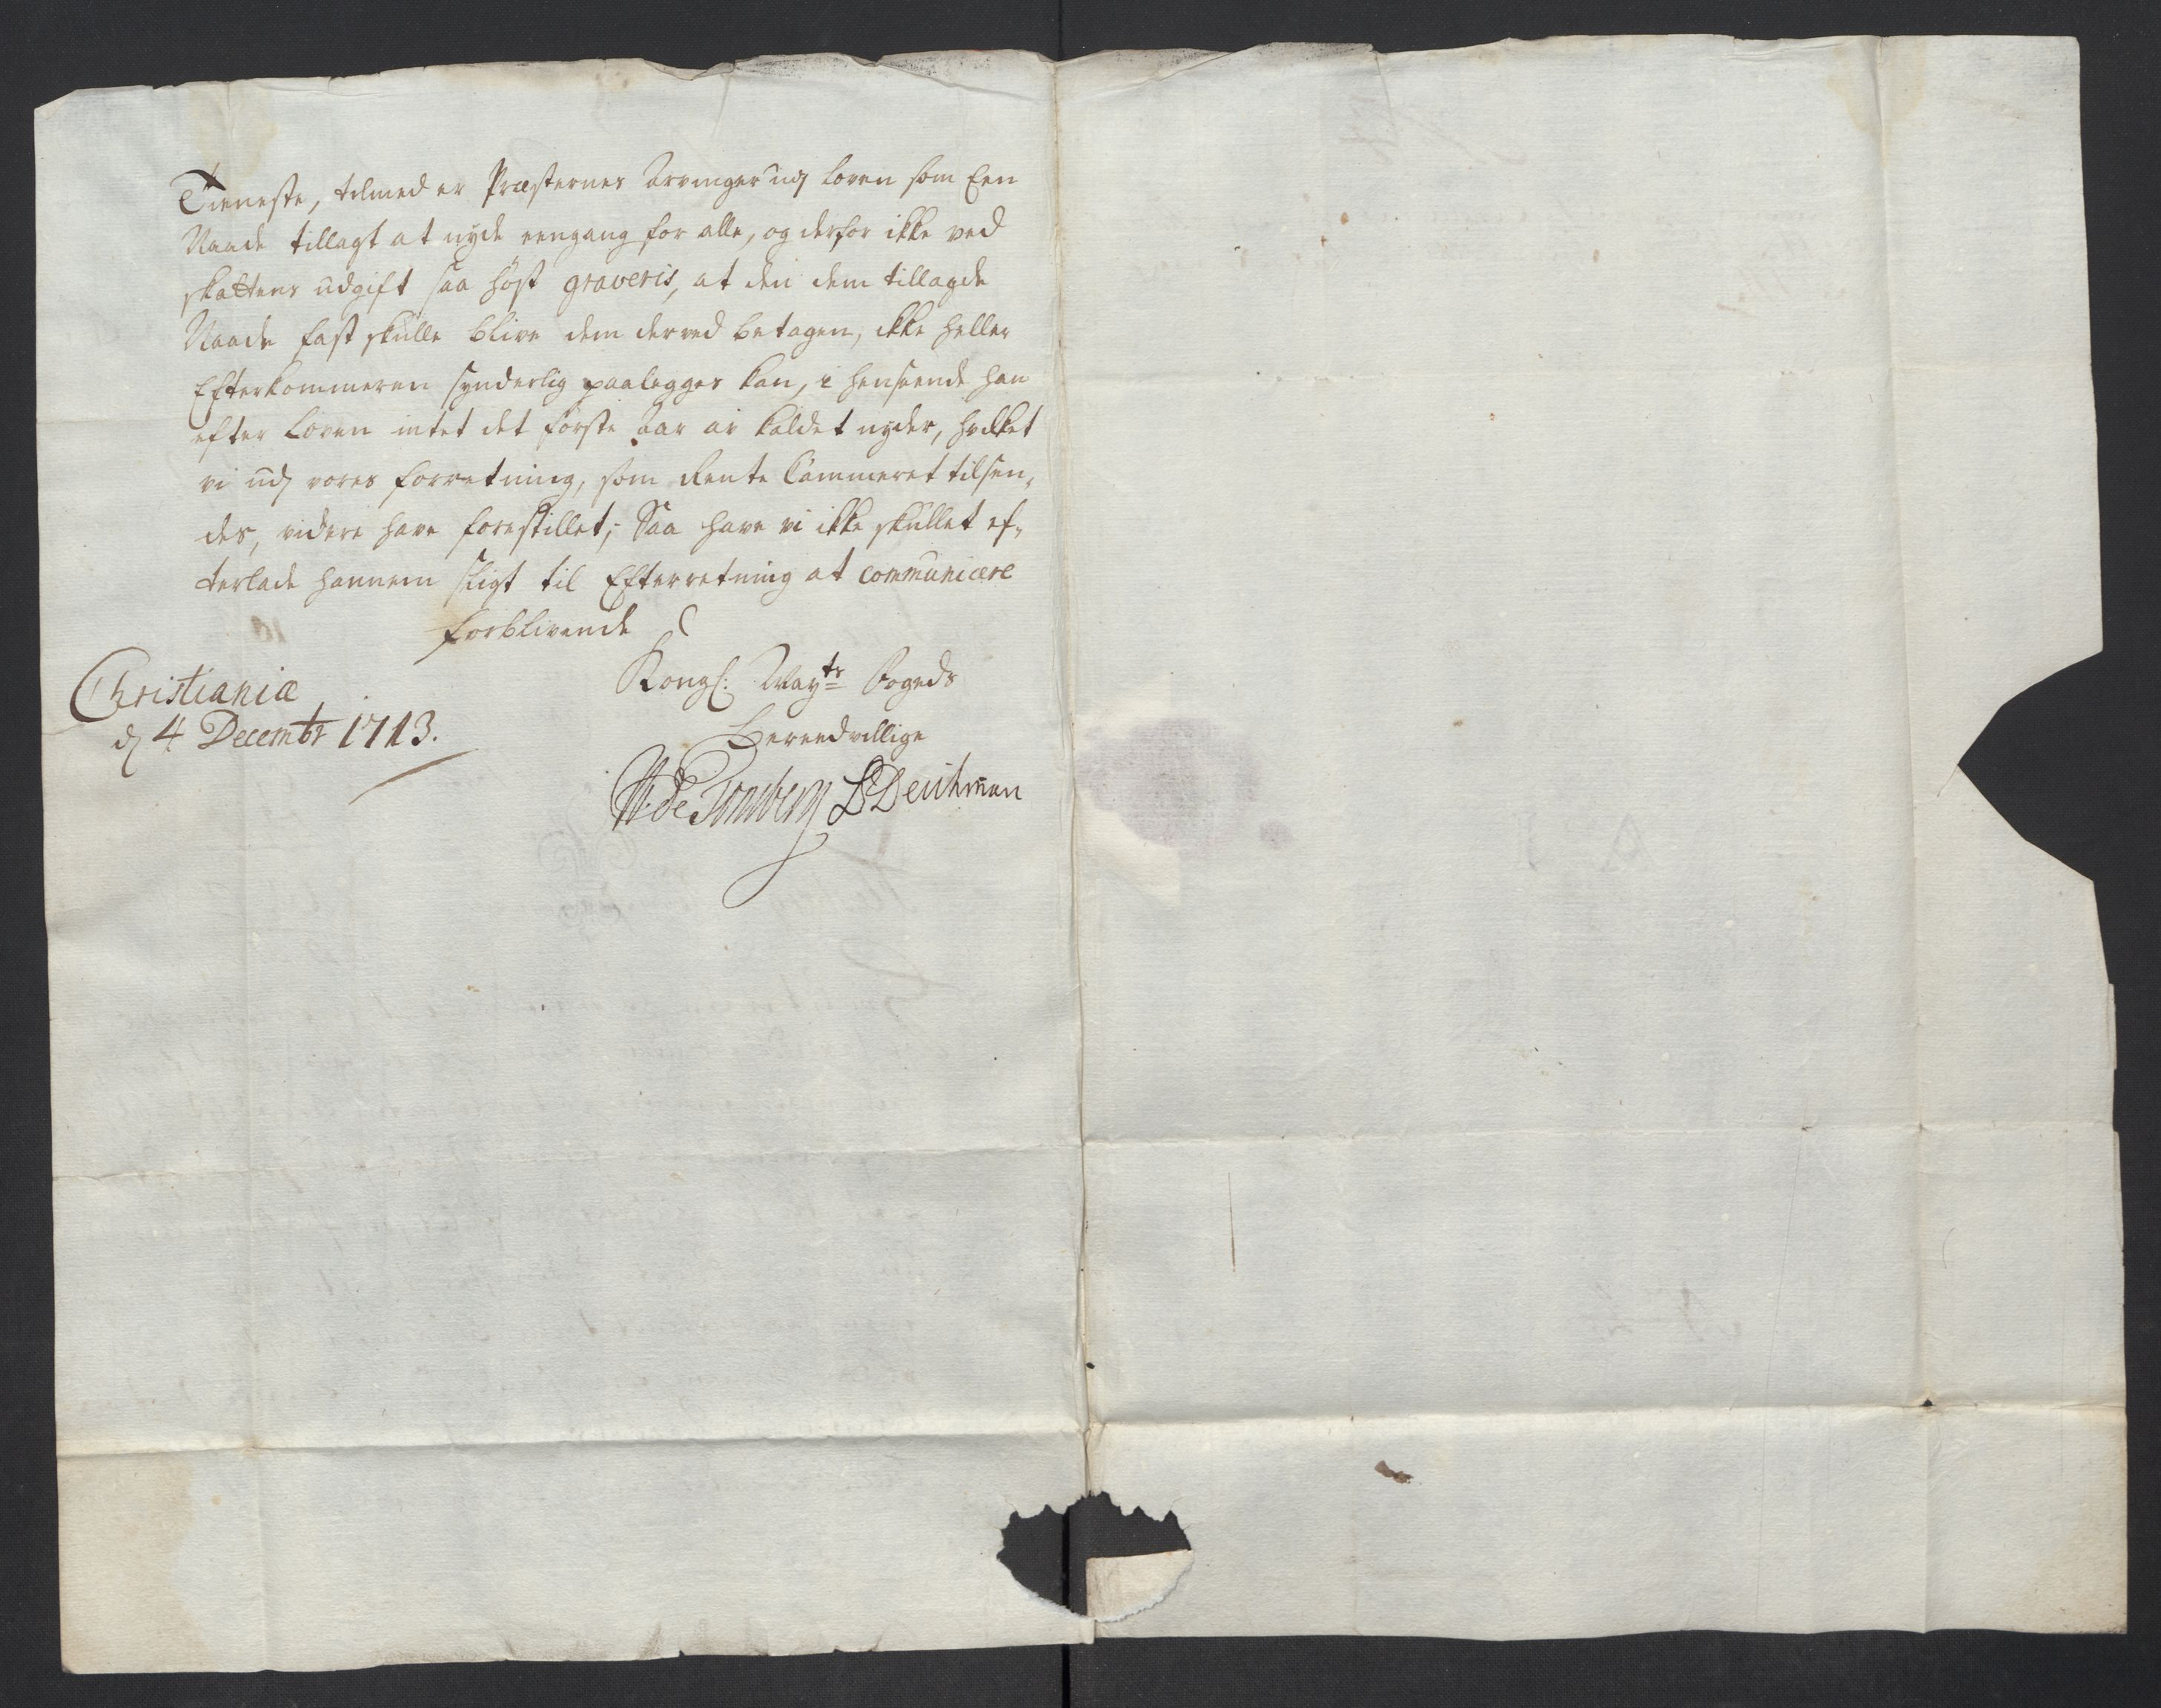 Tieneste, tilmed er Præsternes Arvinger udj Loven som Een
Naade tillagt at nyde eengang for alle, og derfor ikke ved
skattens udgift saa høyt graveris, at den dem tillagde
Naade fast skulle blive dem derved betagen, ikke heller
Efterkommeren synderlig paalegges kan, i henseende han
efter Loven intet det første Aar av kaldet nyder, hvilket
vi udj vores forretning, som Rente Cammeret tilsen„
des, videre have forestillet; Saa have vi ikke skullet ef„
terlade hannem sligt til Efterretning at communicere
forblivende
Kongl: Mayts Fogeds
Christianiæ
dj 4 Decembr 1713.
Bereedvillige
W: de Tonsberg B Deichman